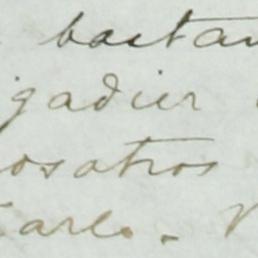 bastan
igadier
osotros